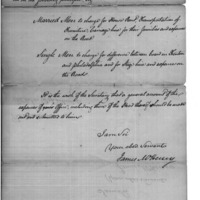 Married Men to charge for House Rent, Transportation of
Furniture, Carriage hire for their families and expences
on the Road.
Single Men to charge for difference between board in Trenton
and Philadelphia and for Stage hire and expences on
the Road.
It is the wish of the Secretary that a general account of the
expences of your Office, including those of the
out and transmitted to him.
I am Sir
Your obed Servant
James McHenry